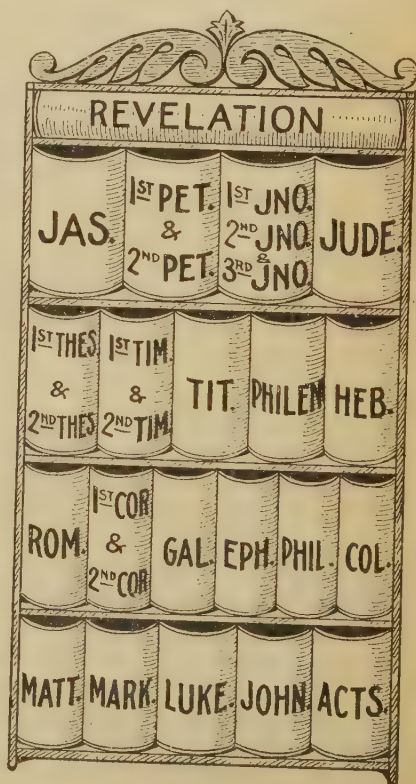 REVELATION
JAS.
1ST PET.
&
2ND PET.
1ST JNO.
2ND JNO.
&
3RD JNO.
JUDE.
1ST THES.
&
2ND THES.
1ST TIM.
&
2ND TIM.
TIT.
PHILEM
HEB.
ROM.
1ST COR
&
2ND COR
GAL.
EPH.
PHIL.
COL.
MATT.
MARK.
LUKE.
JOHN.
ACTS.